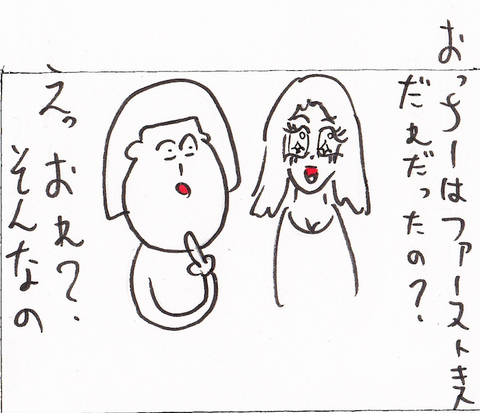 おっちーはファーストキス
だれだったの?
えっおれ?
そんなの